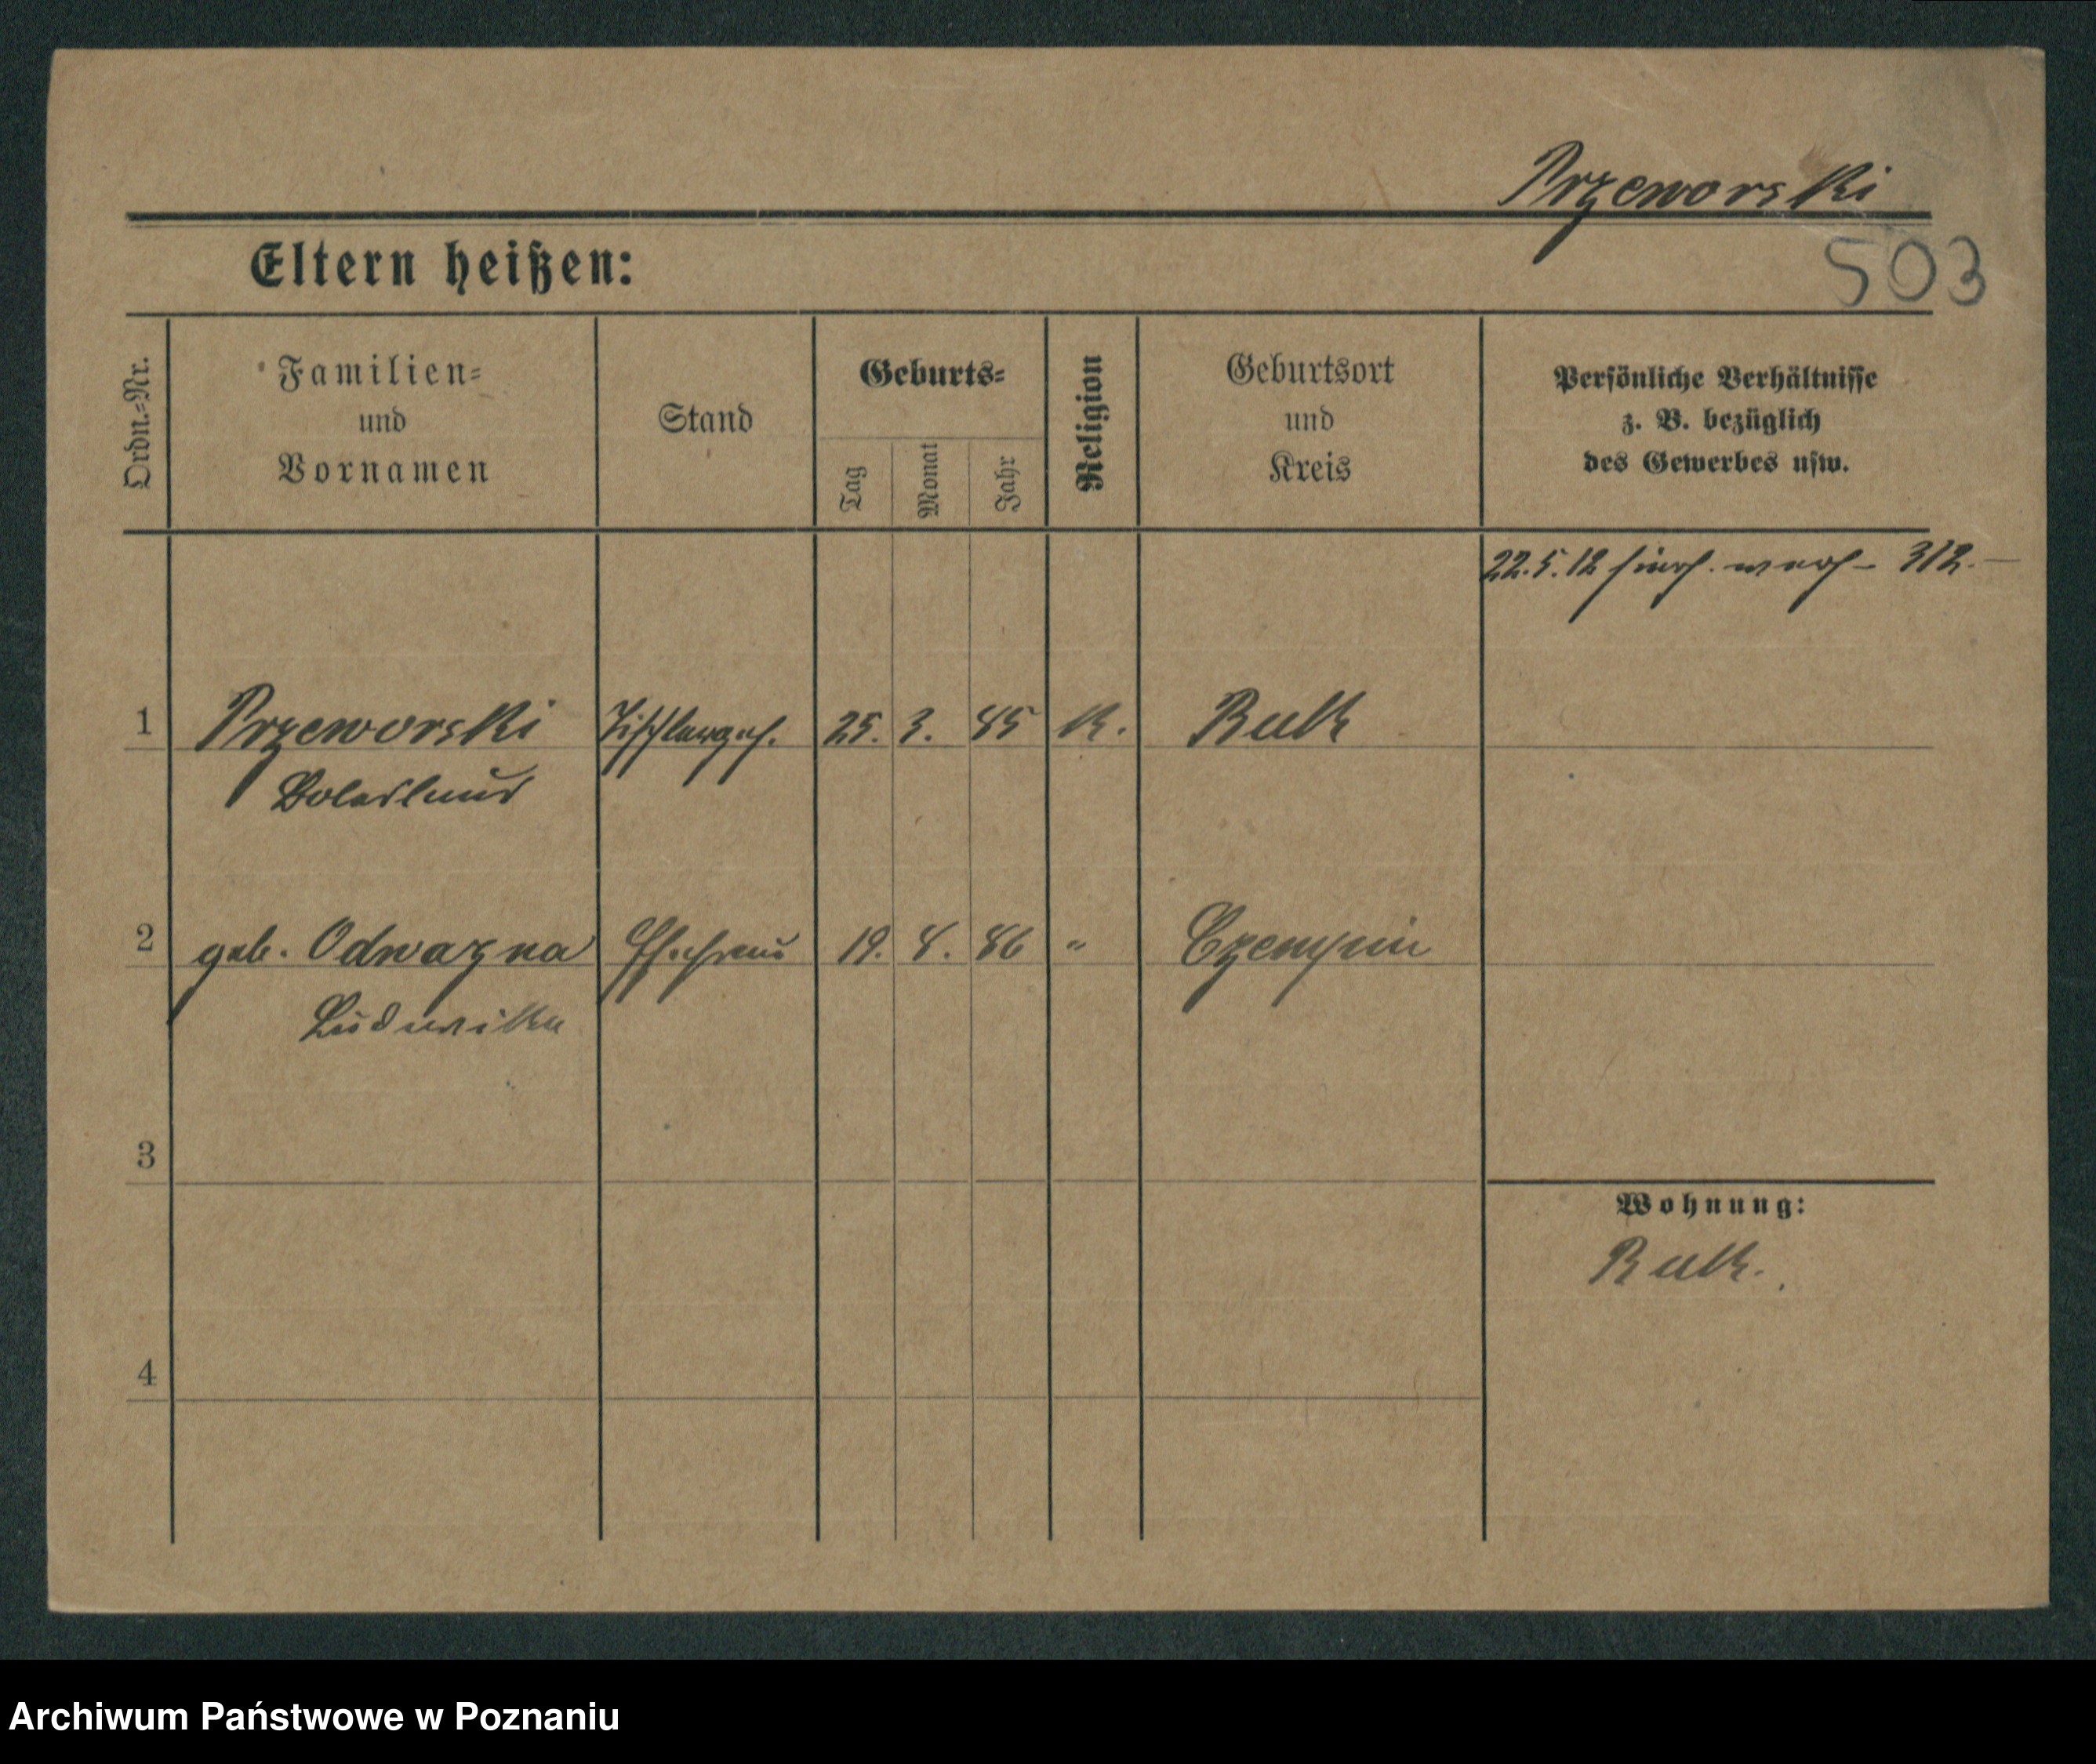 Przeworski
503
Eltern heißen:
Ordn.=Nr.
Familien=
und
Vornamen
Stand
Geburts=
Tag
Monat
Jahr
Religion
Geburtsort
und
Kreis
Persönliche Verhältnisse
z. B. bezüglich
des Gewerbes usw.
22.5.12 312.–
1 Przeworski Tischlerges. 25. 3. 85 K.
Boleslaus
2 geb. Odwazna Ehefrau 19. 8. 86 " Czempin
Ludwika
3
Wohnung:
4
Archiwum Państwowe w Poznaniu